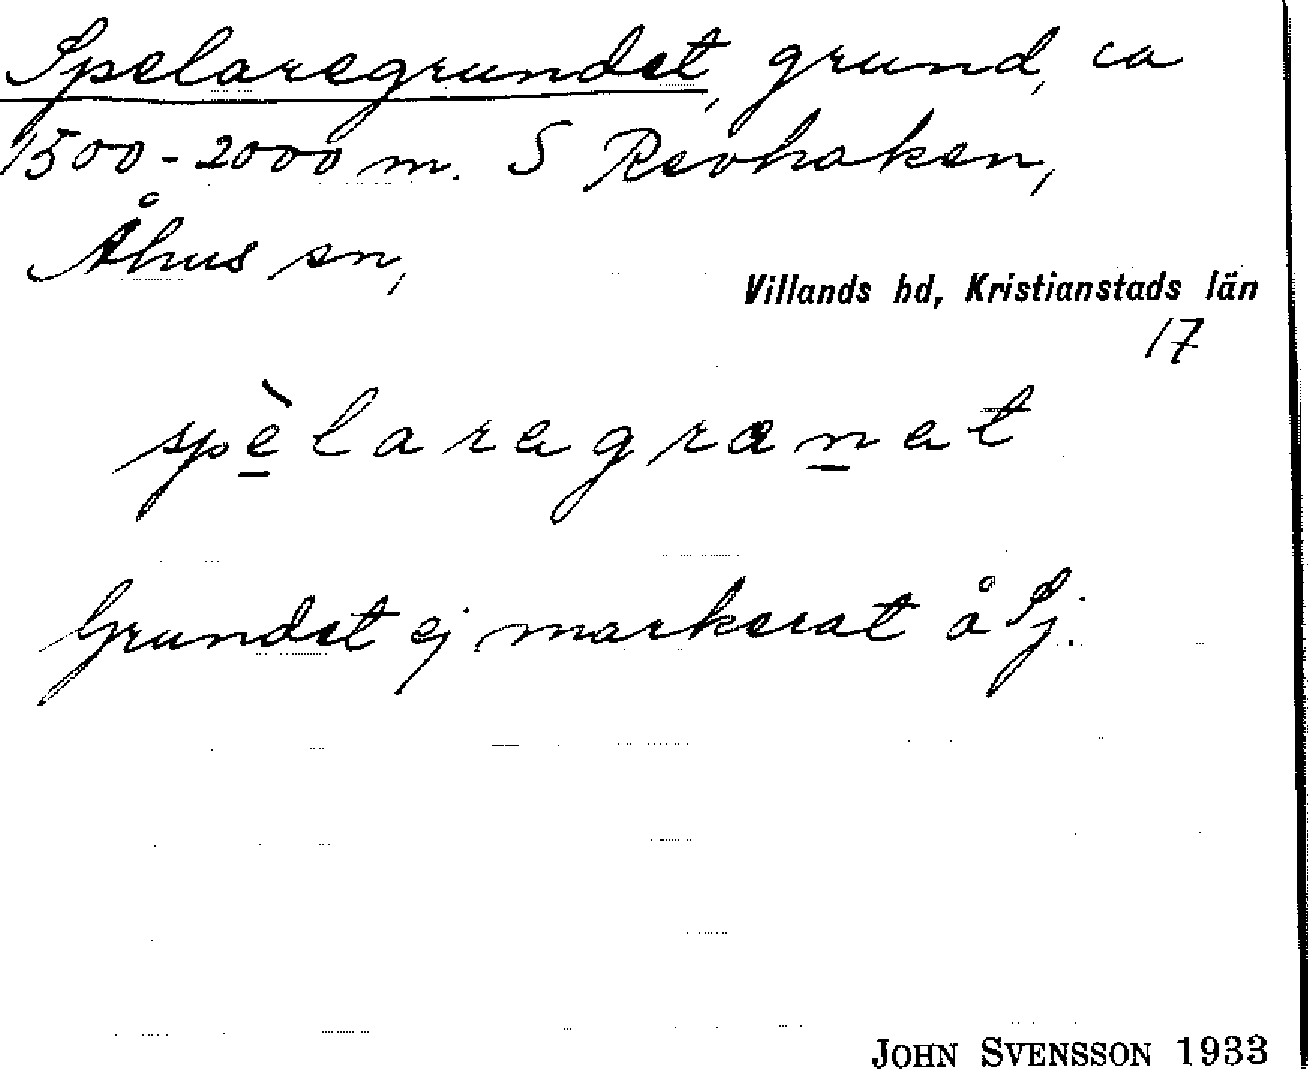 Spelaregrundet, grund, ca
1500-2000 m. S Revhaken,
Åhus sn,
Villands hd, Kristianstads län
17
spèlaragrɑnat
Grundet ej markerat å Sj.
JOHN SVENSSON 1933